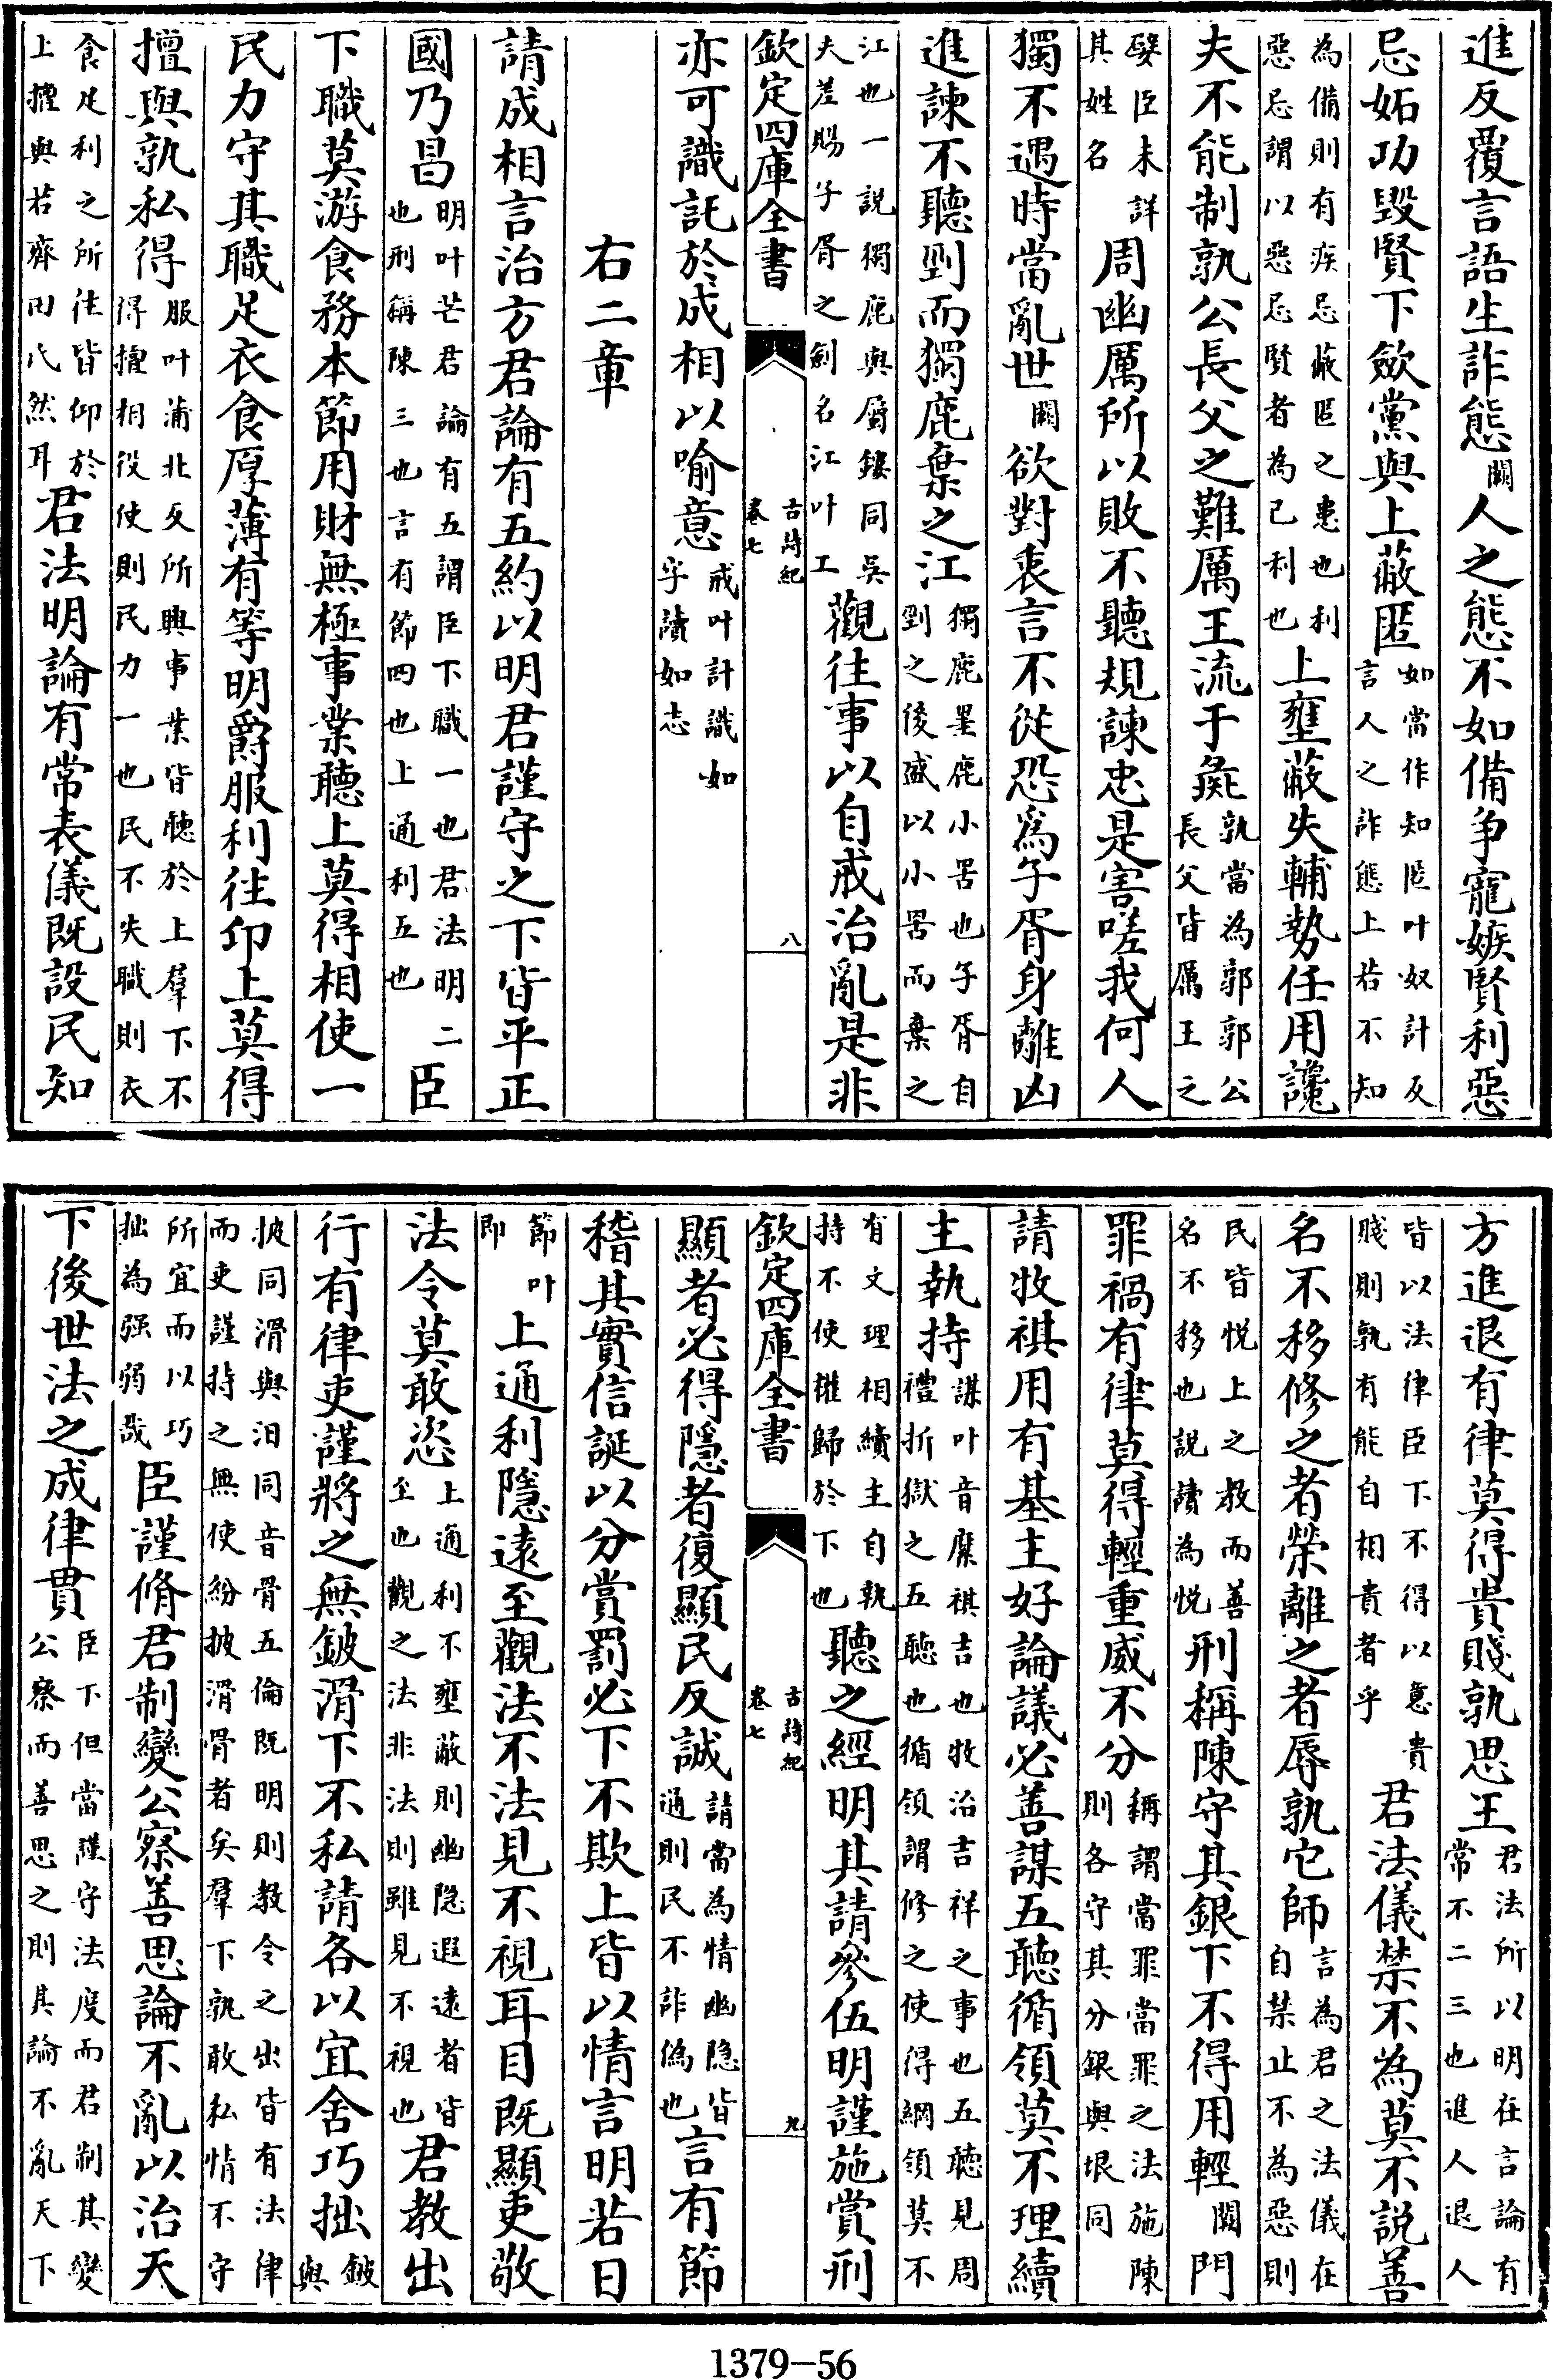 進反覆言語生詐態闕人之態不如備争寵嫉賢利惡
忌妬功毀賢下斂黨與上蔽匿如當作知匿叶奴計反言人之詐態上若不知
為備則有疾忌蔽匿之患也利惡忌謂以惡忌賢者為己利也上壅蔽失輔勢任用讒
夫不能制孰公長父之難厲王流于彘孰當為郭郭公長父皆厲王之
嬖臣未詳其姓名周幽厲所以敗不聽規諫忠是害嗟我何人
獨不遇時當亂世闕欲對衷言不從恐為子胥身離凶
進諫不聽剄而獨鹿棄之江獨鹿罣鹿小罟也子胥自剄之後盛以小罟而棄之
江也一説獨鹿與屬鏤同吳夫差賜子胥之劍名江叶工觀往事以自戒治亂是非
欽定四庫全書 古詩紀 卷七 八
亦可識託於成相以喻意戒叶計識如字讀如志
右二章
請成相言治方君論有五約以明君謹守之下皆平正
國乃昌明叶芒君論有五謂臣下職一也君法明二也刑稱陳三也言有節四也上通利五也臣
下職莫游食務本節用財無極事業聽上莫得相使一
民力守其職足衣食厚薄有等明爵服利往卬上莫得
擅與孰私得服叶蒲北反所興事業皆聽於上羣下不得擅相役使則民力一也民不失職則衣
食足利之所往皆仰於上擅與若齊田氏然耳君法明論有常表儀既設民知
方進退有律莫得貴賤孰思王君法所以明在言論有常不二三也進人退人
皆以法律臣下不得以意貴賤則孰有能自相貴者乎君法儀禁不為莫不説善
名不移修之者榮離之者辱孰它師言為君之法儀在自禁止不為惡則
民皆悦上之教而善名不移也説讀為悦刑稱陳守其銀下不得用輕闕門
罪禍有律莫得輕重威不分稱謂當罪當罪之法施陳則各守其分銀與垠同
請牧祺用有基主好論議必善謀五聽循領莫不理續
主執持謀叶音縻祺吉也牧治吉祥之事也五聽見周禮折獄之五聽也循領謂修之使得綱領莫不
有文理相續主自執持不使權歸於下也聽之經明其請參伍明謹施賞刑
欽定四庫全書 古詩紀 卷七 九
顯者必得隱者復顯民反誠請當為情幽隐皆通則民不詐偽也言有節
稽其實信誕以分賞罰必下不欺上皆以情言明若日
節叶即上通利隱遠至觀法不法見不視耳目既顯吏敬
法令莫敢恣上通利不壅蔽則幽隐遐遠者皆至也觀之法非法則雖見不視也君教出
行有律吏謹將之無鈹滑下不私請各以宜舍巧拙鈹與
披同滑與汨同音骨五倫既明則教令之出皆有法律而吏謹持之無使紛披滑骨者矣羣下孰敢私情不守
所宜而以巧拙為强弱哉臣謹脩君制變公察善思論不亂以治天
下後世法之成律貫臣下但當謹守法度而君制其變公察而善思之則其論不亂天下
1379-56